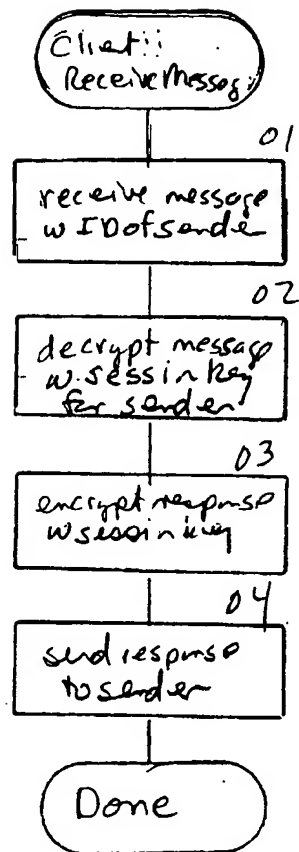 Client::
ReceiveMessag
01
receive message
w IDofsender
02
decrypt message
w. sessin key
for sender
03
encrypt response
w sessin key
04
send response
to sender
Done